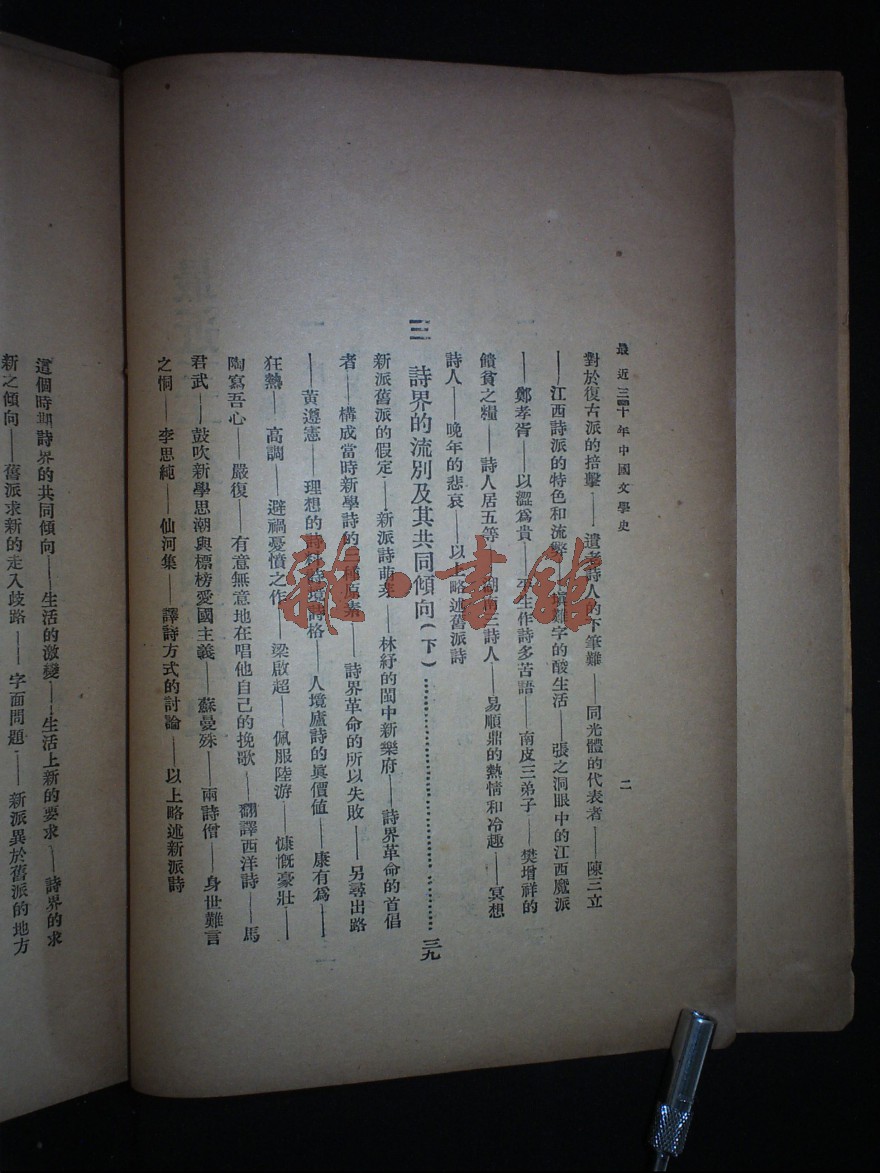 最近三十年中國文學史
二
對於復古派的掊擊——遺老詩人的下筆難——同光體的代表者——陳三立
——江西詩派的特色和流弊——嵌難字的酸生活——張之洞眼中的江西魔派
——鄭孝胥——以澀爲貴——平生作詩多苦語——南皮三弟子——樊增祥的
饋貧之糧——詩人居五等——湖南三詩人——易順鼎的熱情和冷趣——冥想
詩人——晚年的悲哀——以上略述舊派詩
三 詩界的流別及其共同傾向(下)……………………三九
新派舊派的假定——新派詩萌芽——林紓的閩中新樂府——詩界革命的首倡
者——構成當時新學詩的三種原素——詩界革命的所以失敗——另尋出路
——黃遵憲——理想的詩料與境詩格——人境廬詩的眞價値——康有爲——
狂熱——高調——避禍憂憤之作——梁啟超——佩服陸游——慷慨豪壯——
陶寫吾心——嚴復——有意無意地在唱他自己的挽歌——翻譯西洋詩——馬
君武——鼓吹新學思潮與標榜愛國主義——蘇曼殊——兩詩僧——身世難言
之恫——李思純——仙河集——譯詩方式的討論——以上略述新派詩
這個時期詩界的共同傾向——生活的激變——生活上新的要求——詩界的求
新之傾向——舊派求新的走入歧路——字面問題——新派異於舊派的地方
雜·書館